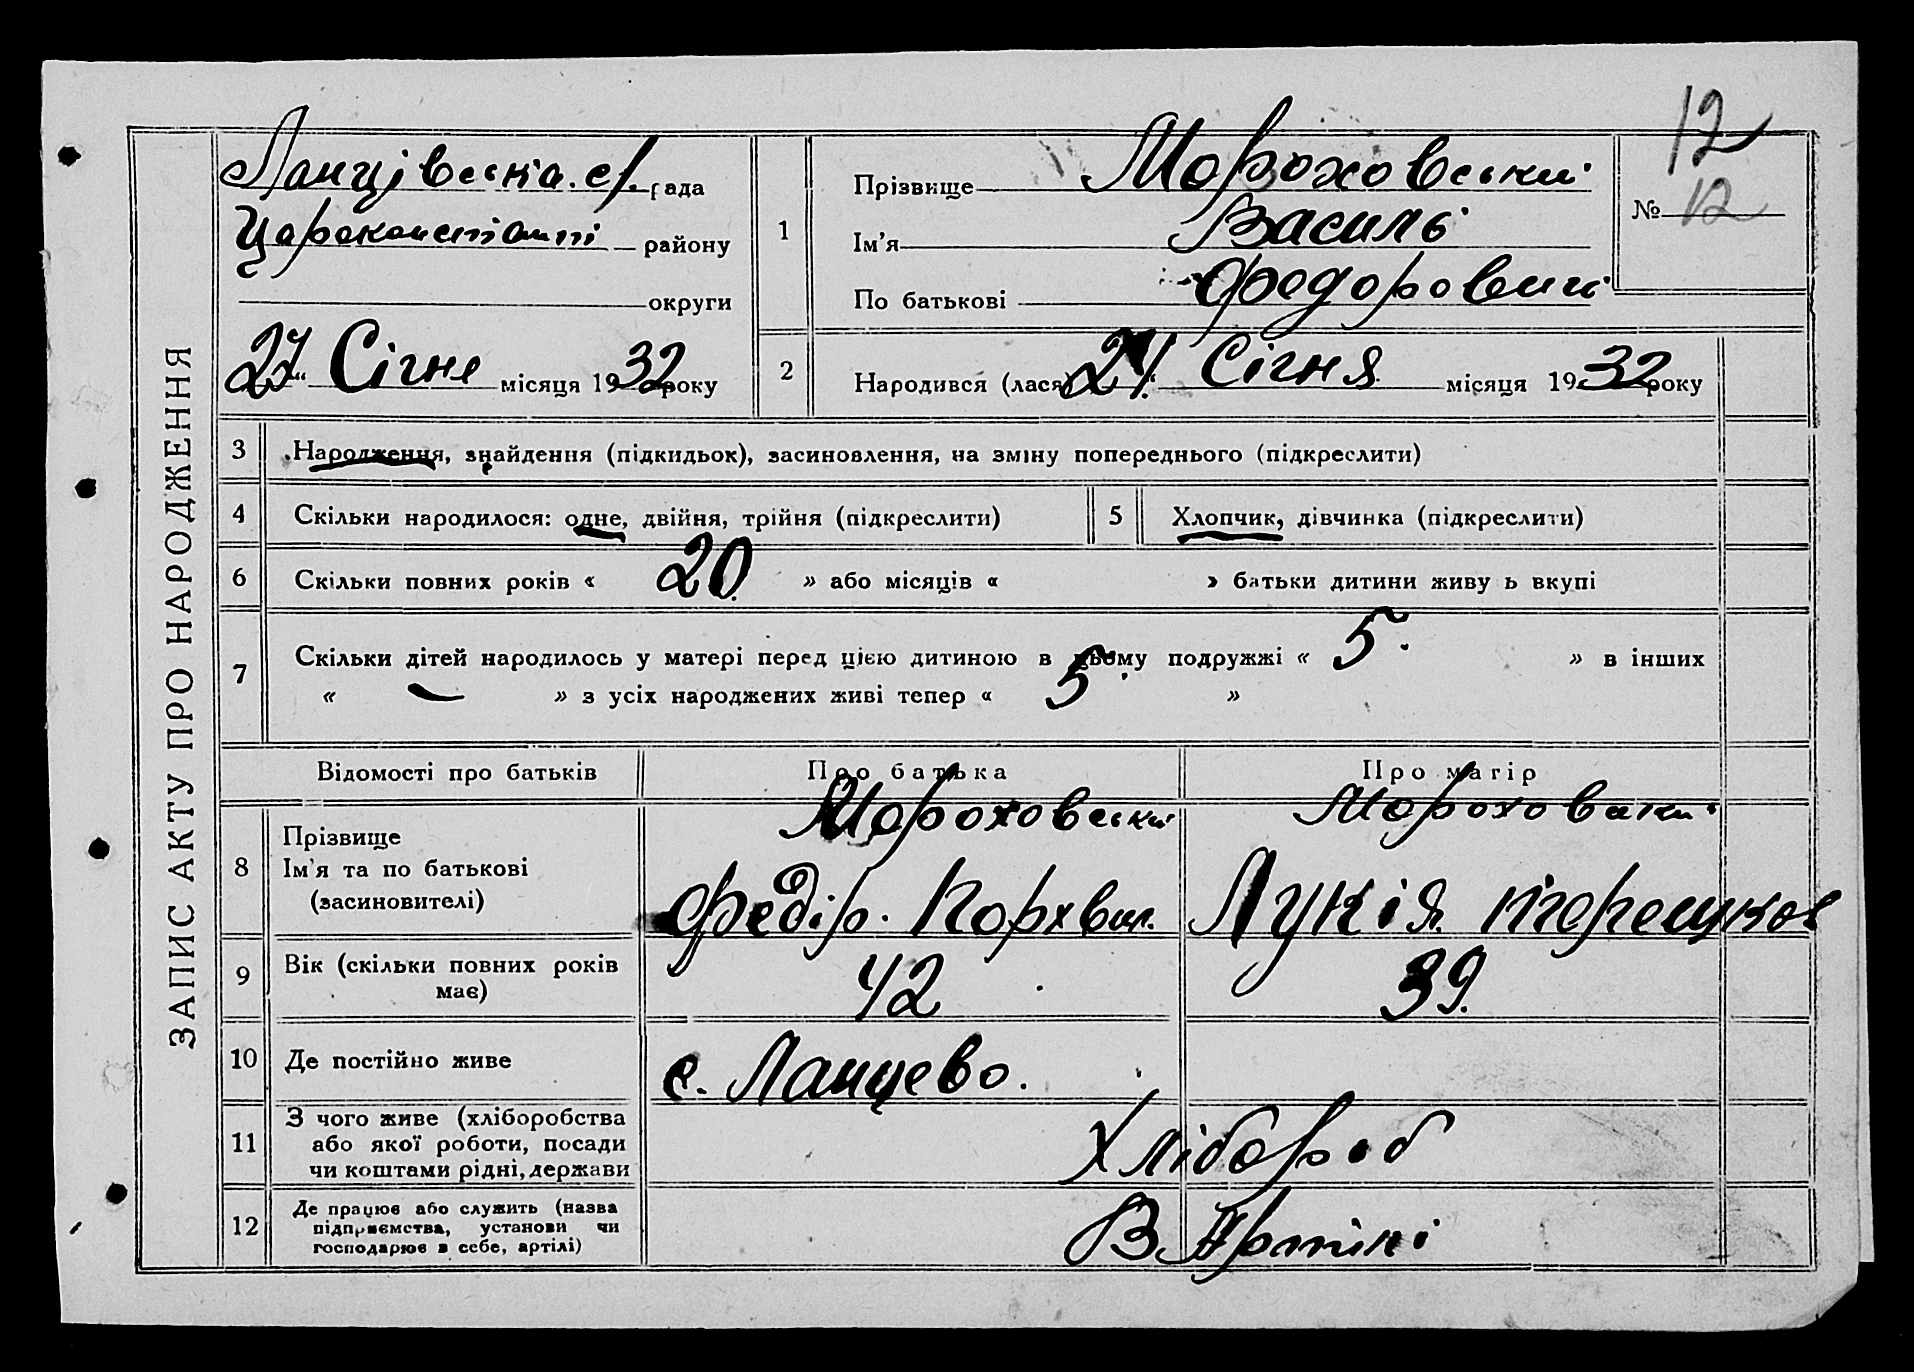 ЗАПИС АКТУ ПРО НАРОДЖЕННЯ
Ланцівська с/рада
Царокопстант району
округи
27 " Січне місяця 1932 року
1
Прізвище Мороховский
Ім'я Василь
По батькові Федорович
12
№ 12
2
Народився (лася) 24 " Січня місяця 1932 року
3 Народження, знайдення (підкидьок), засиновлення, на зміну попереднього (підкреслити)
4 Скільки народилося: одне, двійня, трійня (підкреслити)
5 Хлопчик, дівчинка (підкреслити)
6 Скільки повних років « 20 » або місяців « » батьки дитини живу ь вкупі
7 Скільки дітей народилось у матері перед цією дитиною в цьому подружжі « 5. » в інших
« — » з усіх народжених живі тепер « 5. »
Відомості про батьків
Про батька
Про матір
8 Прізвище
Ім'я та по батькові
(засиновителі)
Мороховски
Федір.
Мороховски
Лукія
9 Вік (скільки повних років
має)
42
39.
10 Де постійно живе
с. Ланцево.
11 З чого живе (хліборобства
або якої роботи, посади
чи коштами рідні, держави
Хлібороб
12 Де працює або служить (назва
підприємства, установи чи
господарює в себе, артілі)
В Артілі